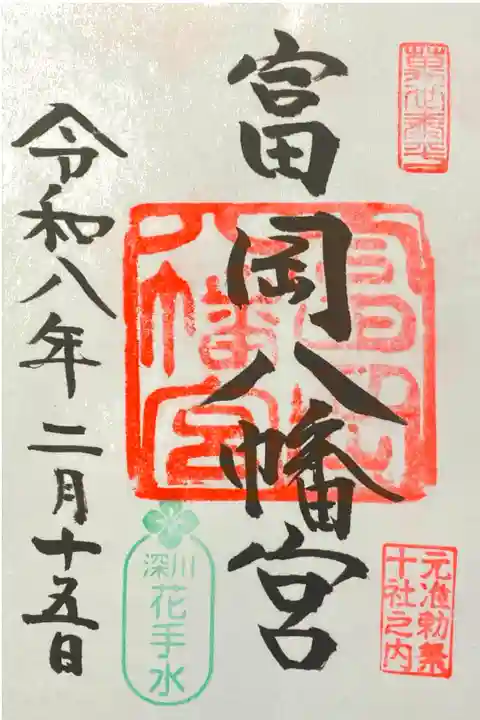 富岡八幡宮
富岡
八幡宮
元准勅祭
十社之内
令和八年二月十五日
深川
花手水